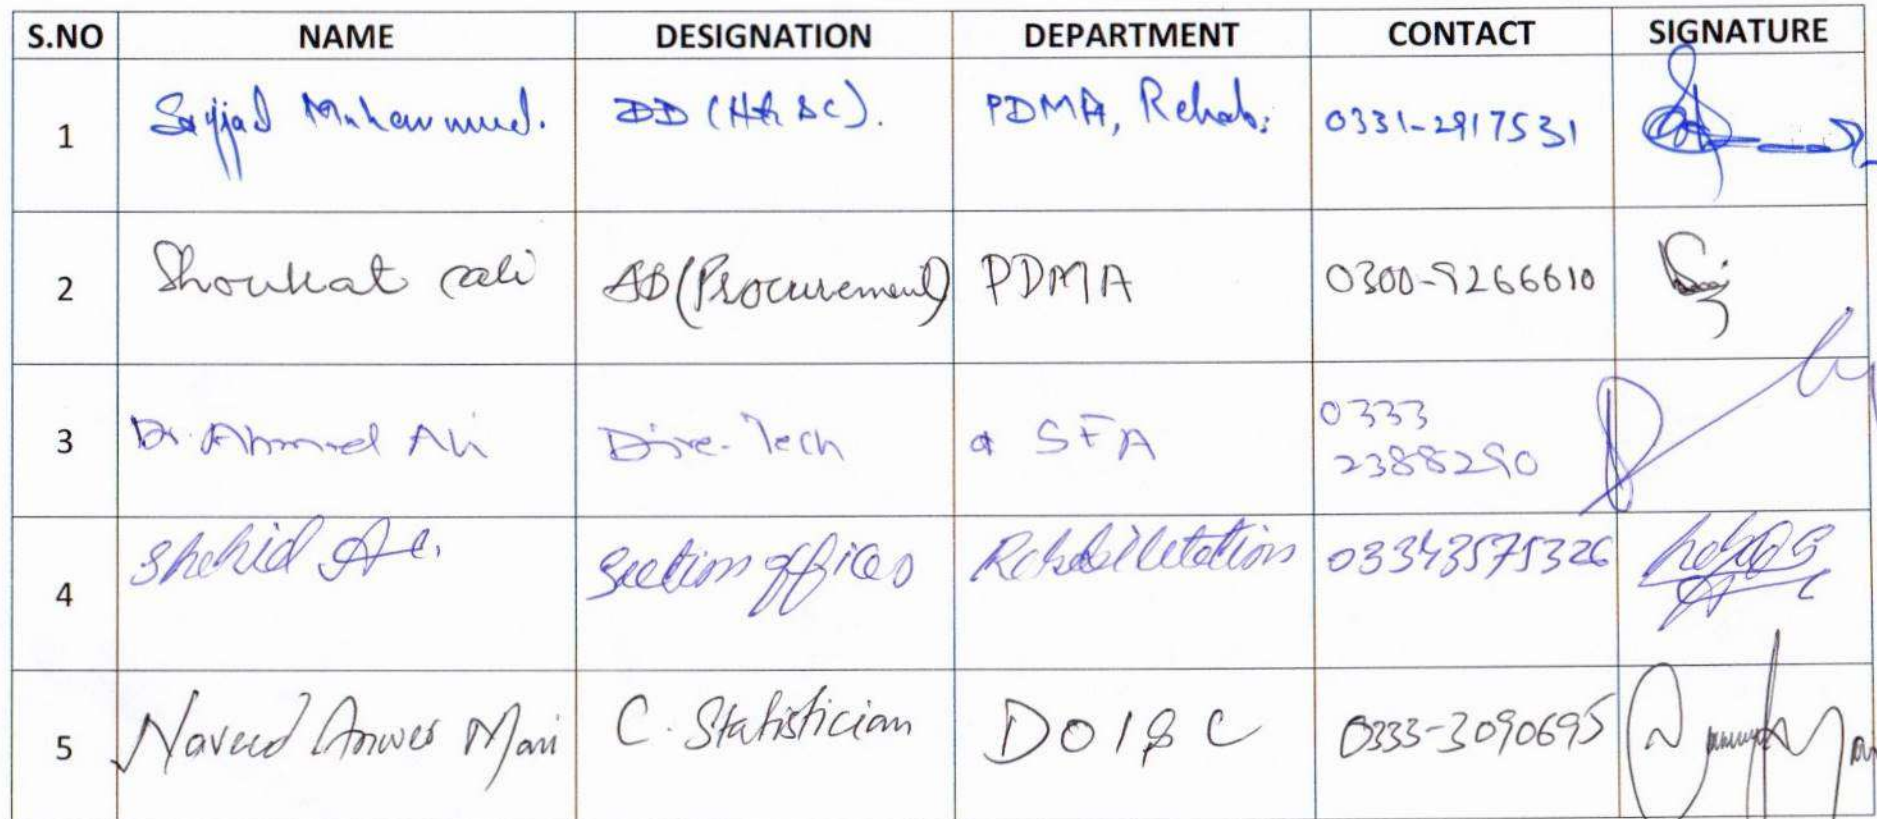 S.NO NAME DESIGNATION DEPARTMENT CONTACT SIGNATURE
1 Sajjad Muhammad. DD (). PDMA, Rehab: 0331-2917531
2 Shoukat Ali AD (Procurement) PDMA 0300-9266610
3 Dr. Ahmed Ali Dire-Tech SFA 0333
2388290
4 Shahid Section Officer Rehabilitation 03343575326
5 Naveed Anwer Mari C. Statistician DOI & C 0333-3090695